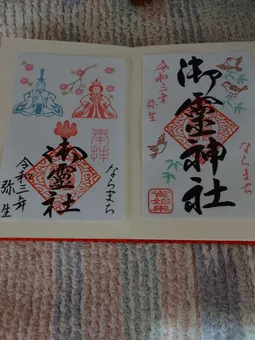 御霊神社
令和三年
弥生
ならまち
奉拝
御霊社
ならまち
令和三年
弥生